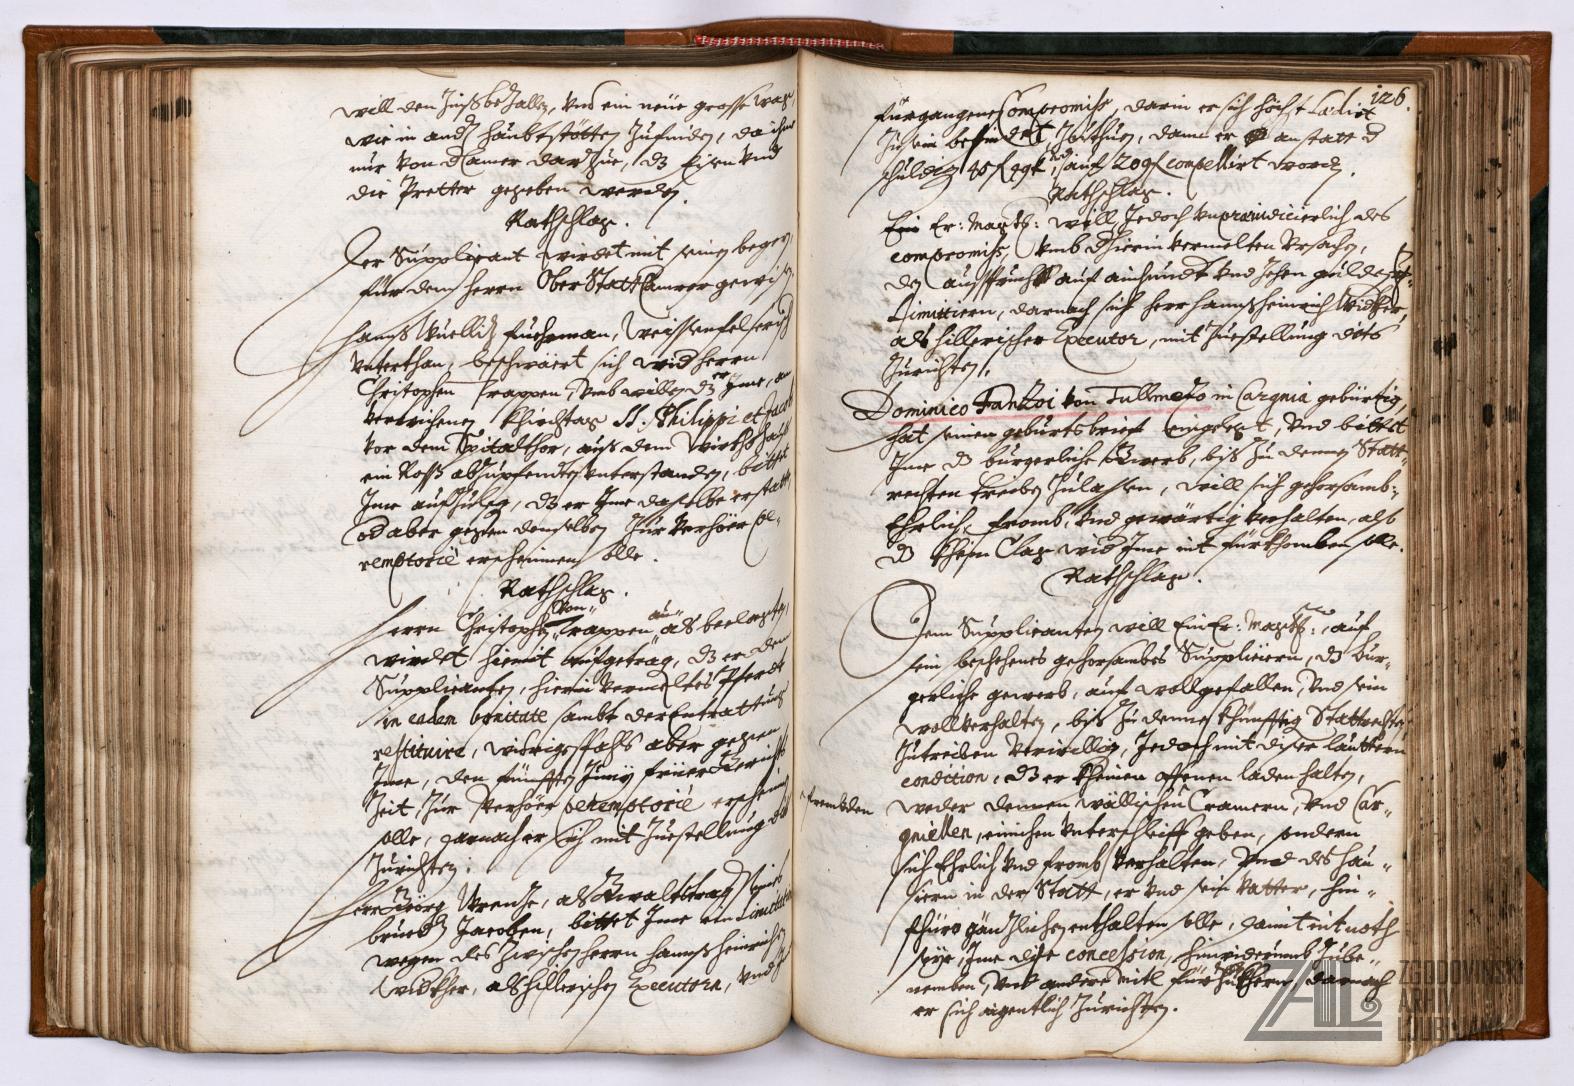 will den Zinß bezallen, vnd ein neüe grosse wag
wie in andern haubtstötten Zufinden, da ihme
nur von der Camer darzue, dz Eisen vnd
die Pretter gegeben werden.
Rathschlag.
Der Supplicant wirdet mit seinem begern
für dem herrn Ober Statt Camrer gewisen
Hannß fuehrman, Weissenfelserischer
vnterthan, beschwärt sich wider herrn
Christophen Trappen, vmb willen dz er Ime, an
verwichenen Khirchtag SS. Philippi et Jacobi
vor dem Spitalthor, auß dem Würthshauß
ein Roß abzupfenden vnterstanden, bittet
Ime aufzulegen, dz er Ime dasselbe erstatten
od aber gegen demselben Zur verhöer pe-
remptoriè erscheinnen solle.
Rathschlag.
Herrn Christophen von Trappen, als beclagten,
wirdet hiemit aufgetragen, dz er dem
Supplicanten, hierin vermeltes Pferdt
in eadem bonitate sambt der Entrattung
restituire, widrigsfahls aber gegen
Ime, den fünfften Junij früer Gerichts
Zeit, Zur Verhöer peremptoriè erscheinen
solle, darnach er sich mit Zuestellung diß
Zurichten.
Herr Geörg, als Gwaltstrager seines
brueders Jacoben, bittet Ime ein
wegen des Zwischen herrn Hannß Heinrichen
Widkher, als hillerischen Executorn, vnd Ime
126.
fürgangenen Compromiss, darin er sich höchst Laedirt
Zusein befindet, Zuthuen, dann er anstatt der
schuldigen 45 f 49 k, auf 209 f compellirt worden.
Rathschlag.
Ein Er: Magth: will, Jedoch vnpraeiudicierlich des
compromiss, vmb hierin vermelten vrsachen,
den außspruch auf ainhundert vnd Zehen gulden
Limitiern, darnach sich herr Hannß Heinrich Widkher,
als hillerischer Executor, mit Zuestellung dits
Zurichten.
Dominico Fantzoi von Tullmetzo in Cargnia gebürtig,
hat seinen geburtsbrief eingelegt, vnd bittet
Ime dz burgerliche gwerb, biß zu dennen Statt-
rechten treiben Zulassen, will sich gehorsamb-,
Ehrlich, fromb, vnd gewärtig verhalten, alß
dz khein Clag wider Ime nit fürkhomben solle.
Rathschlag.
Dem Supplicanten will Ein Er: Magth:, auf
sein beschehenes gehorsambes Suppliciern, dz bur-
gerliche gewerb, auf wollgefallen, vnd sein
wollverhalten, biß zu denne khünfftig Stattrechten,
Zutreiben verwilligen, Jedoch mit diser lauttern
condition, dz er kheinen offenen laden halten,
frembden
weder dennen wällischen Cramern, vnd Car-
gniellen, einichen vnterschleiff geben, sondern
sich Ehrlich vnd fromb verhalten, vnd des hau-
siern in der Statt, er vnd sein vatter, hin-
fhüro gäntzlichen enthalten solle, damit nit noth
seye, Ime dise concession, hinwiderumb Zube-
nemben, vnd andere mitl fürzukhern, darnach
er sich aigentlich Zurichten.
ZAL
ZGODOVINSKI
ARHIV
LJUBLJANA